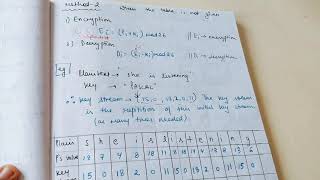 Method-2 When the table is not given
1) Encryption
Ei = (Pi + Ki) mod 26
2) Decryption
Di = (Ei - Ki) mod 26
eg Plaintext → she is listening
key → "PASCAL"
∴ key stream → (15, 0, 18, 2, 0, 11) The key stream
is the repetition of this initial key stream
(as many times needed)
Plain s h e i s l i s t e n i n g
P's value 18 7 4 8 18 11 8 18 19 4 13 8 13 6
Key 15 0 18 2 0 11 15 0 18 2 0 11 15 0